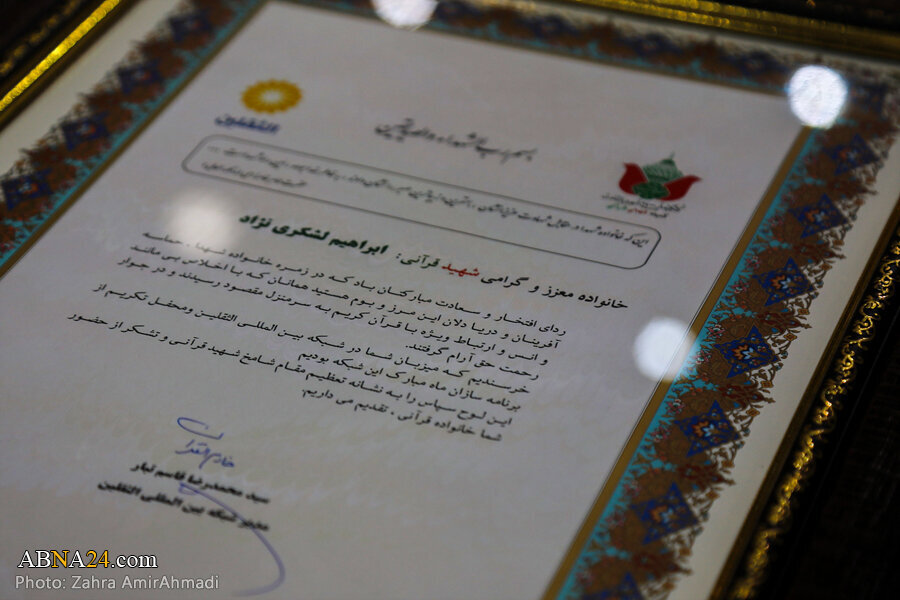 الثقلین
بسم رب الشهداء والصدیقین
خانواده معزز و گرامی شهید قرآنی: ابراهیم لشکری نژاد
ردای افتخار و سعادت مبارکتان باد که در زمره خانواده شهدا، حماسه
آفرینان و دریا دلان این مرز و بوم هستید همانان که با اخلاص بی مانند
و انس و ارتباط ویژه با قرآن کریم به سرمنزل مقصود رسیدند و در جوار
رحمت حق آرام گرفتند.
خرسندیم که میزبان شما در شبکه بین المللی الثقلین ومحفل تکریم از
برنامه سازان ماه مبارک این شبکه بودیم
این لوح سپاس را به نشانه تعظیم مقام شامخ شهید قرآنی و تشکر از حضور
شما خانواده قرآنی، تقدیم می داریم.
خادم القرآن
سید محمدرضا قاسم تبار
مدیر شبکه بین المللی الثقلین
ABNA24.com
Photo: Zahra AmirAhmadi